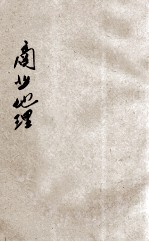 商业地理